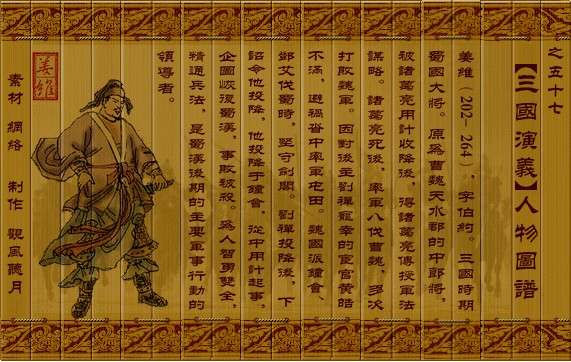 之五十七
【三國演義】人物圖譜
姜維(202-264),字伯約。三國時期
蜀國大將。原爲曹魏天水郡的中郎將,
被諸葛亮用計收降後,得諸葛亮傳授軍法
謀略。諸葛亮死後,率軍八伐曹魏,多次
打敗魏軍。因對後主劉禪寵幸的宦官黃皓
不滿,避禍沓中率軍屯田。魏國派鍾會、
鄧艾伐蜀時,堅守劍閣。劉禪投降後,下
詔令他投降,他投降于鍾會,從中用計起事,
企圖恢復蜀漢,事敗被殺。爲人智勇雙全,
精通兵法,是蜀漢後期的主要軍事行動的
領導者。
姜維
素材 網絡 制作 觀風聽月